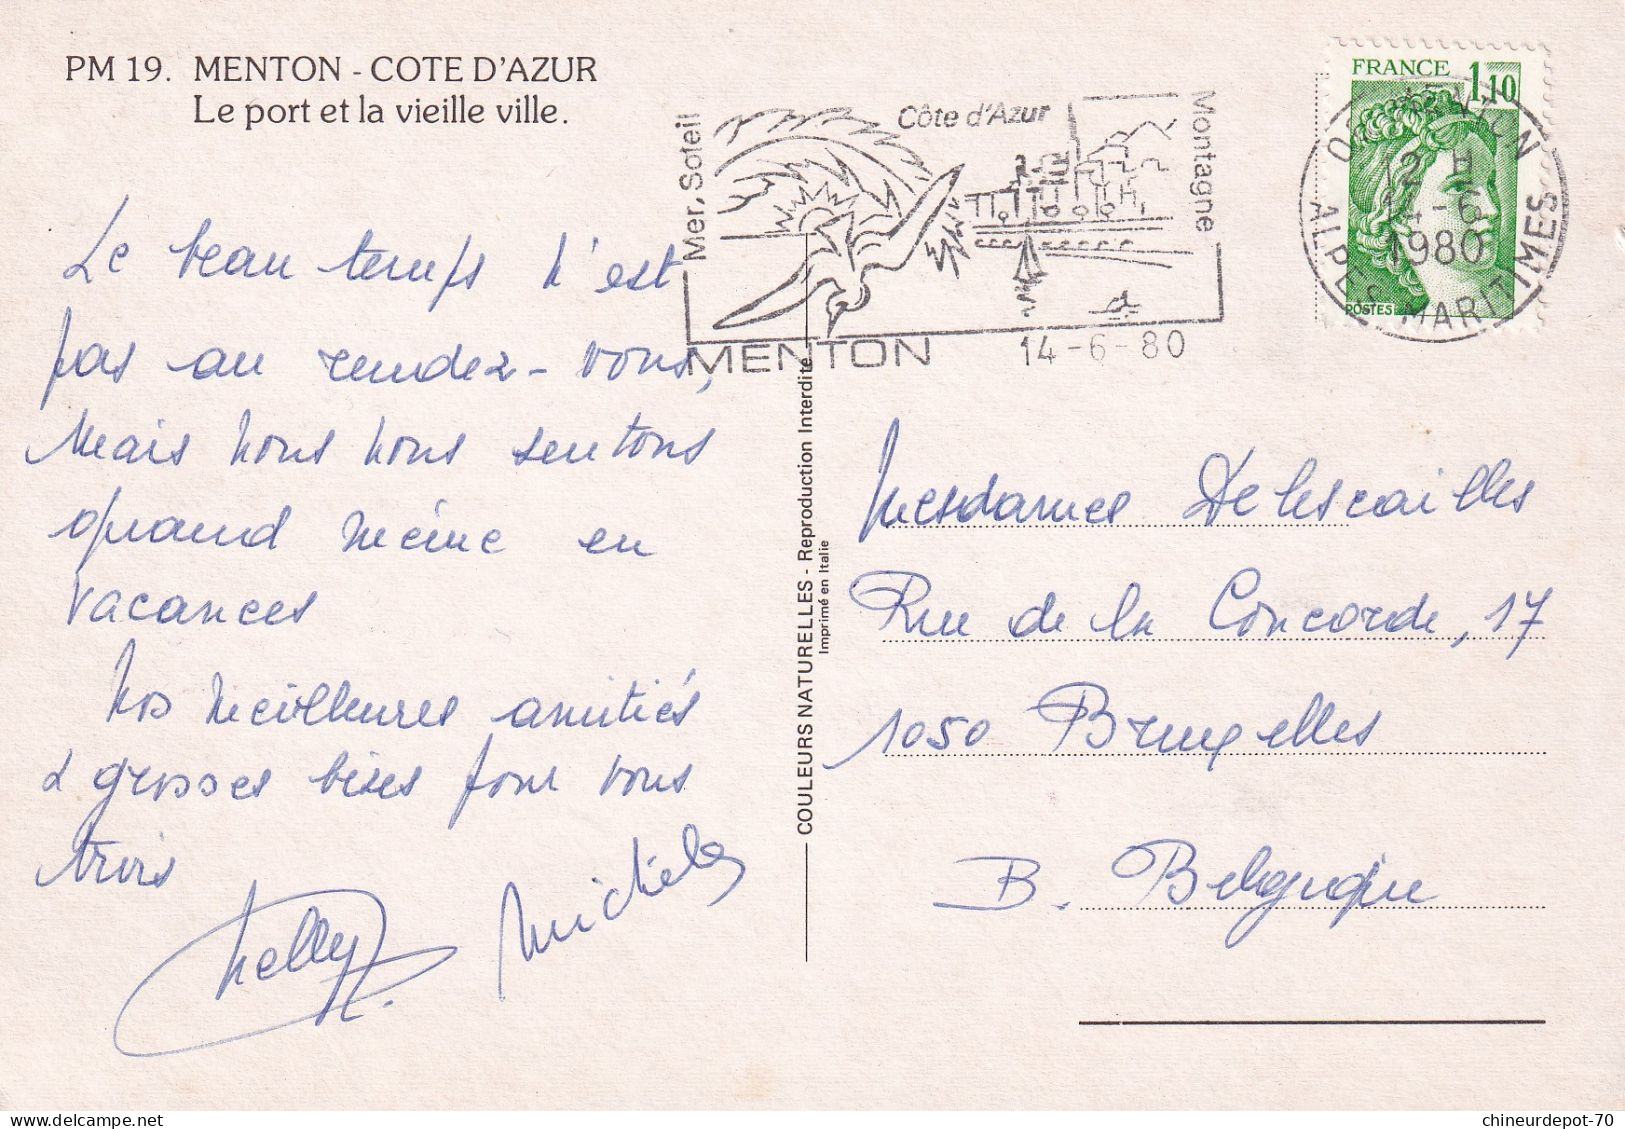 PM 19. MENTON - COTE D'AZUR
Le port et la vieille ville.
Le beau temps n'est
pas au rendez-vous,
Mais nous nous sentons
quand même en
vacances
Nos meilleures amitiés
& grosses bises pour vous
trois
Nelly Michel
Mer, Soleil
Côte d'Azur
Montagne
MENTON
14-6-80
FRANCE 1,10
POSTES
12 H
14-6
1980
ALPES MARITIMES
COULEURS NATURELLES - Reproduction Interdite
Imprimé en Italie
Mesdames Delescailles
Rue de la Concorde, 17
1050 Bruxelles
B. Belgique
chineurdepot-70